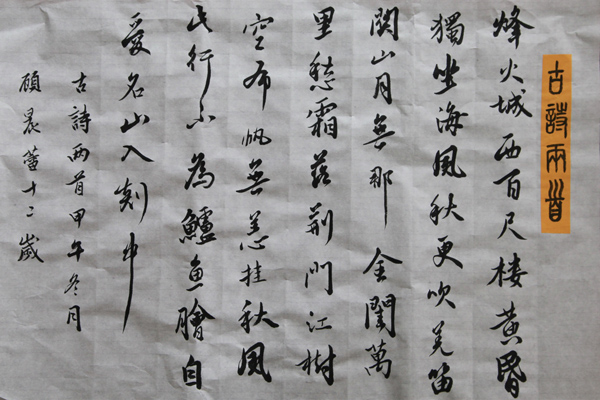 古詩兩首
烽火城西百尺樓黄昏
獨坐海風秋更吹羌笛
関山月無那金閨萬
里愁霜落荊門江樹
空布帆無恙挂秋風
此行不為鱸魚膾自
愛名山入剡中
古詩兩首甲午冬月
頋晨蕾十二歲